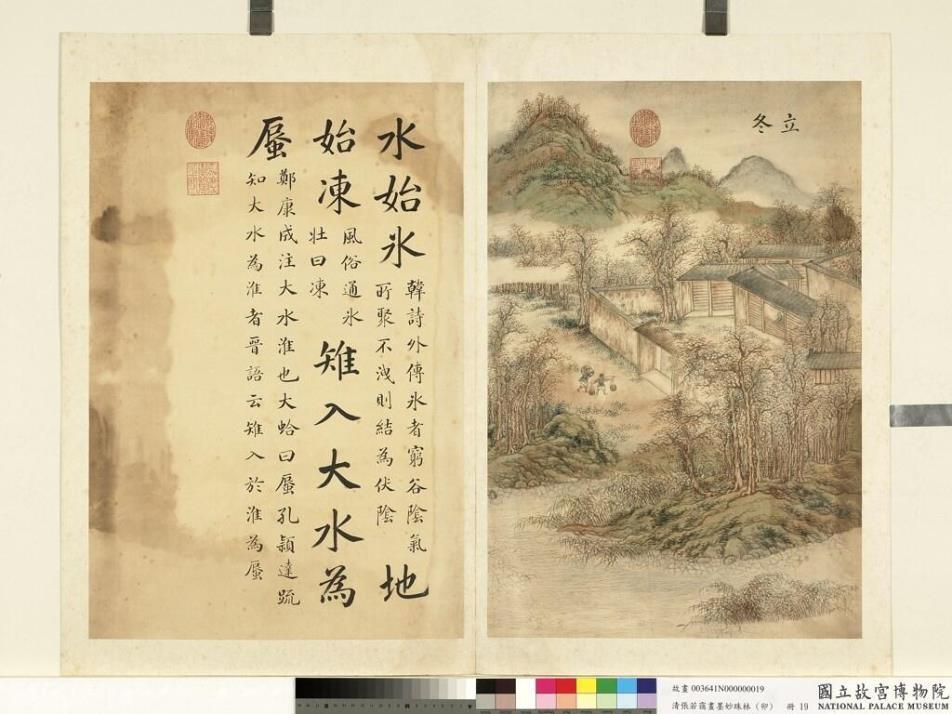 立冬
水始氷
韓詩外傳氷者窮谷陰氣
所聚不洩則結為伏陰
地
始凍
風俗通氷
壯曰凍
雉入大水為
蜃
鄭康成注大水淮也大蛤曰蜃孔穎達疏
知大水為淮者晉語云雉入於淮為蜃
故畫 003641N000000019
清張若靄畫墨妙珠林（卯） 冊 19
國立故宮博物院
NATIONAL PALACE MUSEUM